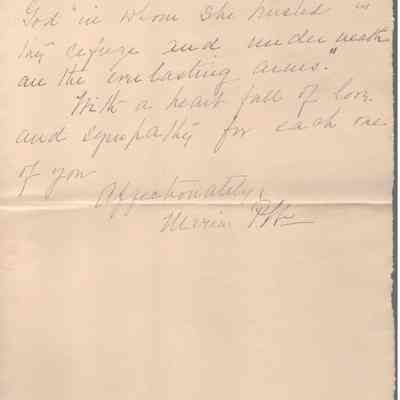 God" in whom she trusted "is
thy refuge and underneath
are the everlasting arms."
With a heart full of love
and sympathy for each one
of you
Affectionately,
Maria